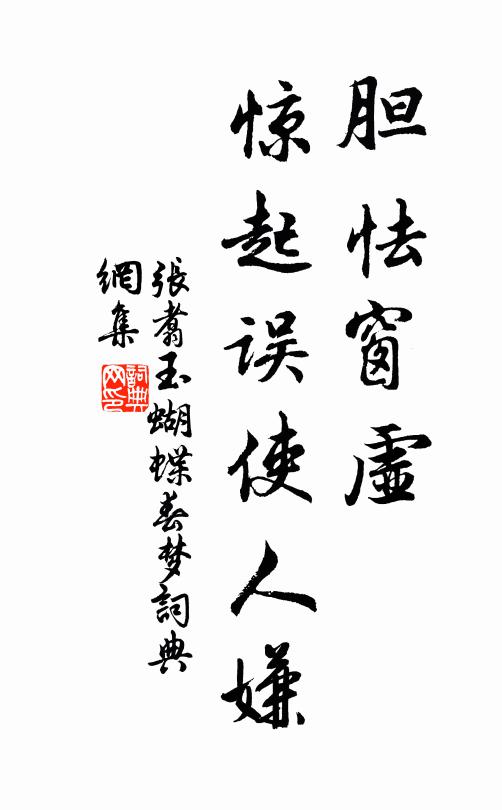 胆怯窗虛
惊起误使人嫌
張翥玉蝴蝶春梦詞典
網集
詞典网印